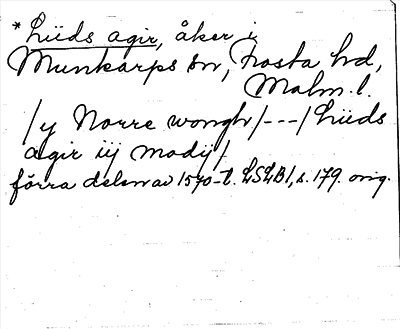 *Lüds agir, åker i
Munkarps sn, Frosta hd,
Malm. l.
/y Norre wongh/---/Lüds
agir iij modij/
förra delen av 1570-t. LSLB1, s. 179. orig.